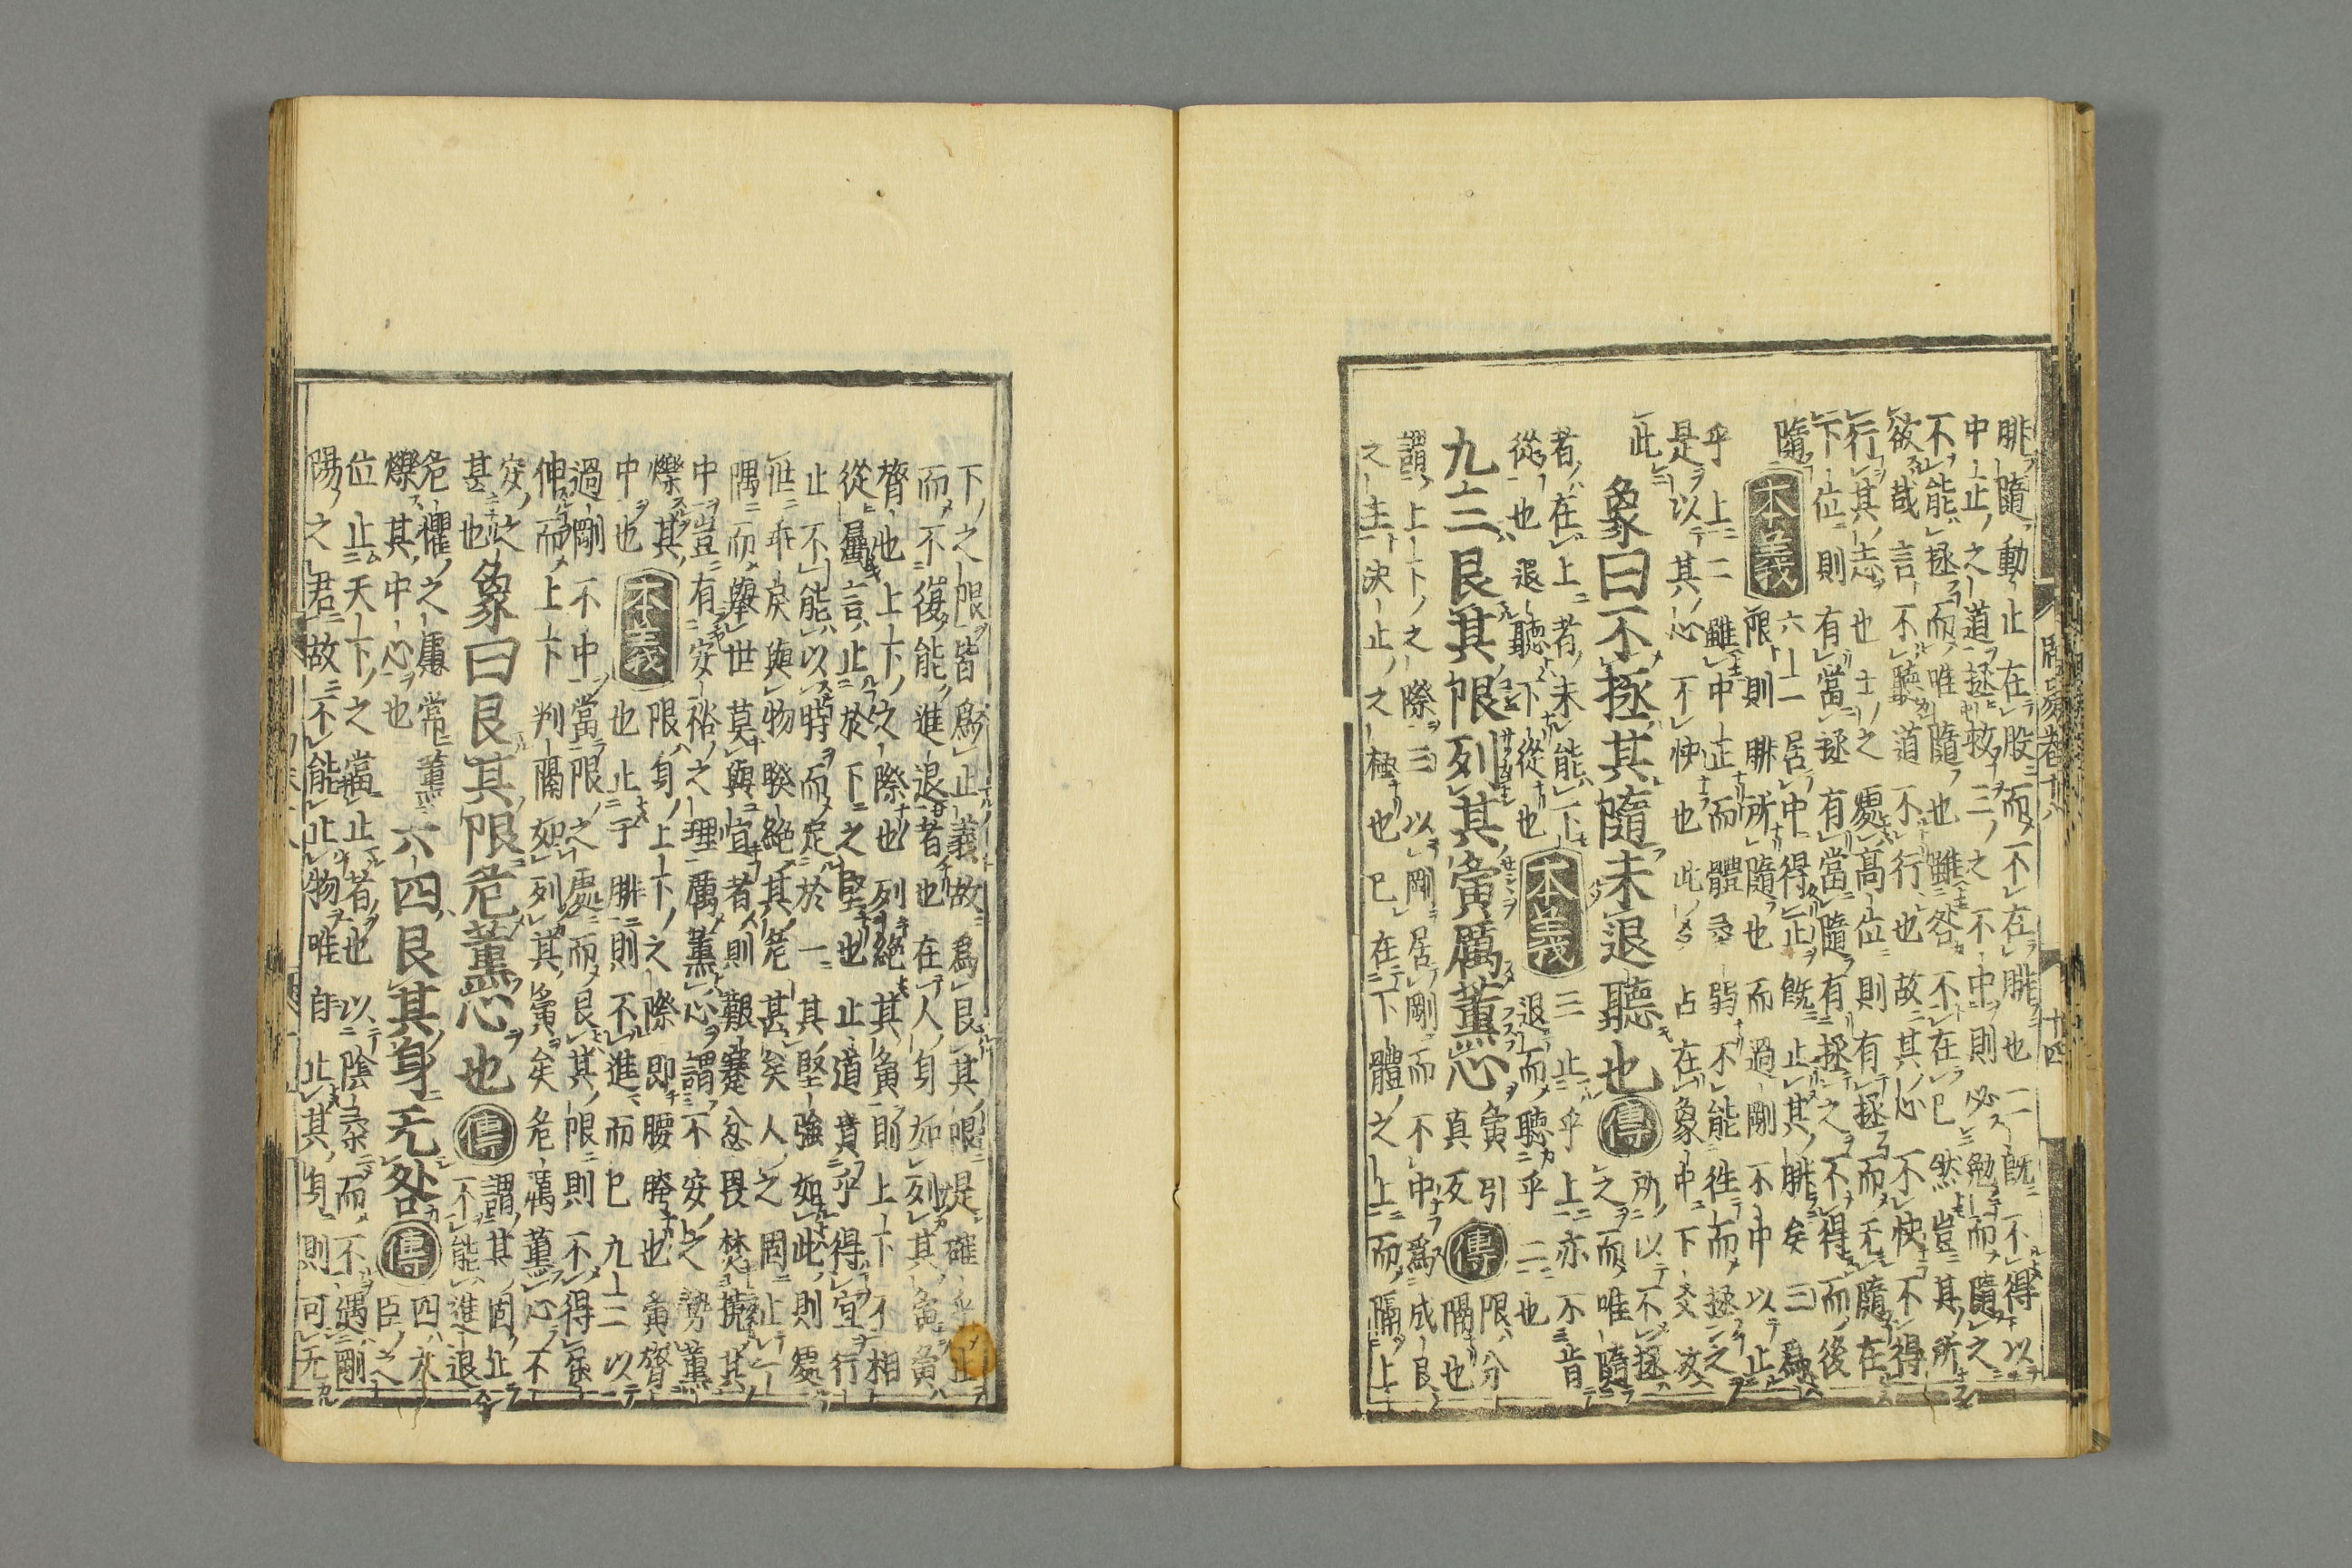 周易卷十八 十四
腓隨動止在股而不在腓也二既不得以
中止之道拯救三之不中則必勉而隨之
不能拯而唯隨也雖咎不在已然豈其所
欲哉言不聽道不行也故其心不快不得
行其志也士之處高位則有拯而无隨在
下位則有當拯有當隨有拯之不得而後
隨 本義 六二居中得正既止其腓矣三爲
限則腓所隨也而過剛不中以止
乎上二雖中正而體柔弱不能往而拯之
是以其心不快也此爻占在象中下爻放
此
象曰不拯其隨未退聽也 傳 所以不拯
之而唯隨
者在上者未能下
從也退聽下從也 本義 三止乎上亦不肯
退而聽乎二也
九三艮其限列其夤厲薰心 夤引
真反 傳 限分
隔也
謂上下之際三以剛居剛而不中爲成艮
之主決止之極也已在下體之上而隔上
下之限皆爲止義故爲艮其限是確乎止
而不復能進退者也在人身如列其夤夤
膂也上下之際也列絶其夤則上下不相
從屬言止於下之堅也止道貴乎得宜行
止不能以時而定於一其堅強如此則處
世乖戾與物睽絶其危甚矣人之固止一
隅而舉世莫與宜者則艱蹇忿畏焚撓其
中豈有安裕之理厲薰心謂不安之勢薰
爍其
中也 本義 限身上下之際即腰胯也夤膂
也止于腓則不進而已九三以
過剛不中當限之處而艮其限則不得屈
伸而上下判隔如列其夤矣危厲薰心不
安之
甚也 象曰艮其限危薰心也 傳 謂其固止
不能進退
危懼之慮常薰
爍其中心也 六四艮其身无咎 傳 四大
臣之
位止天下之當止者也以陰柔而不遇剛
陽之君故不能止物唯自止其身則可无